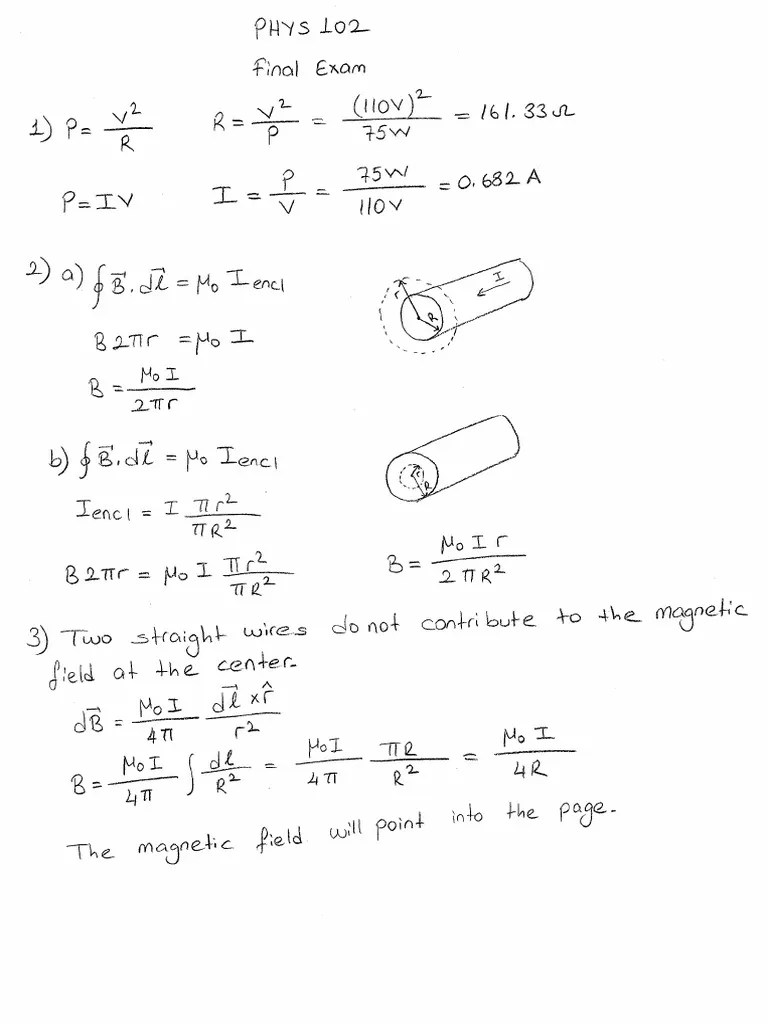 PHYS 102
Final Exam
1) P = V²/R   R = V²/P = (110V)²/75W = 161.33 Ω
P = IV   I = P/V = 75W/110V = 0.682 A
2) a) ∮ B⃗ . dl⃗ = μ₀ I encl
B 2πr = μ₀ I
B = μ₀ I / 2πr
r
R
I
b) ∮ B⃗ . dl⃗ = μ₀ I encl
I encl = I πr²/πR²
B 2πr = μ₀ I πr²/πR²
r
R
B = μ₀ I r / 2πR²
3) Two straight wires do not contribute to the magnetic
field at the center.
dB⃗ = μ₀ I/4π dl⃗ × r̂/r²
B = μ₀ I/4π ∫ dl/R² = μ₀ I/4π πR/R² = μ₀ I/4R
The magnetic field will point into the page.